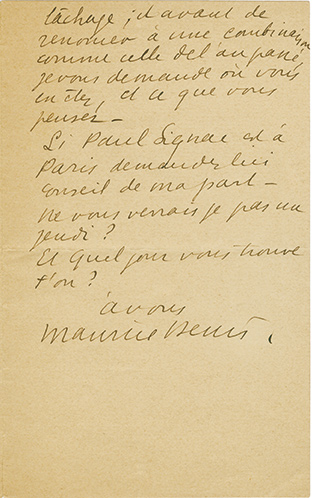 tachage ; et avant de
renoncer à une combinaison
comme celle de l'an passé,
je vous demande où vous
en êtes, et ce que vous
pensez —
Si Paul Signac est à
Paris demandez lui
conseil de ma part —
Ne vous verrais je pas un
jeudi ?
Et quel jour vous trouve
t'on ?
à vous
Maurice Denis.